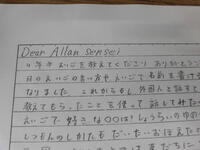 Dear Allan sensei
1年半 えいごを教えてくださり ありがとう
日の えいごの言い方や えいごで 名前を書け
なりました。これからもし 外国人と話す
教えてもらったことを使って 話してみた
えいごで 好きな〇〇は? しょうらいのゆめ
しつもんのしかたも だいたいおぼえた